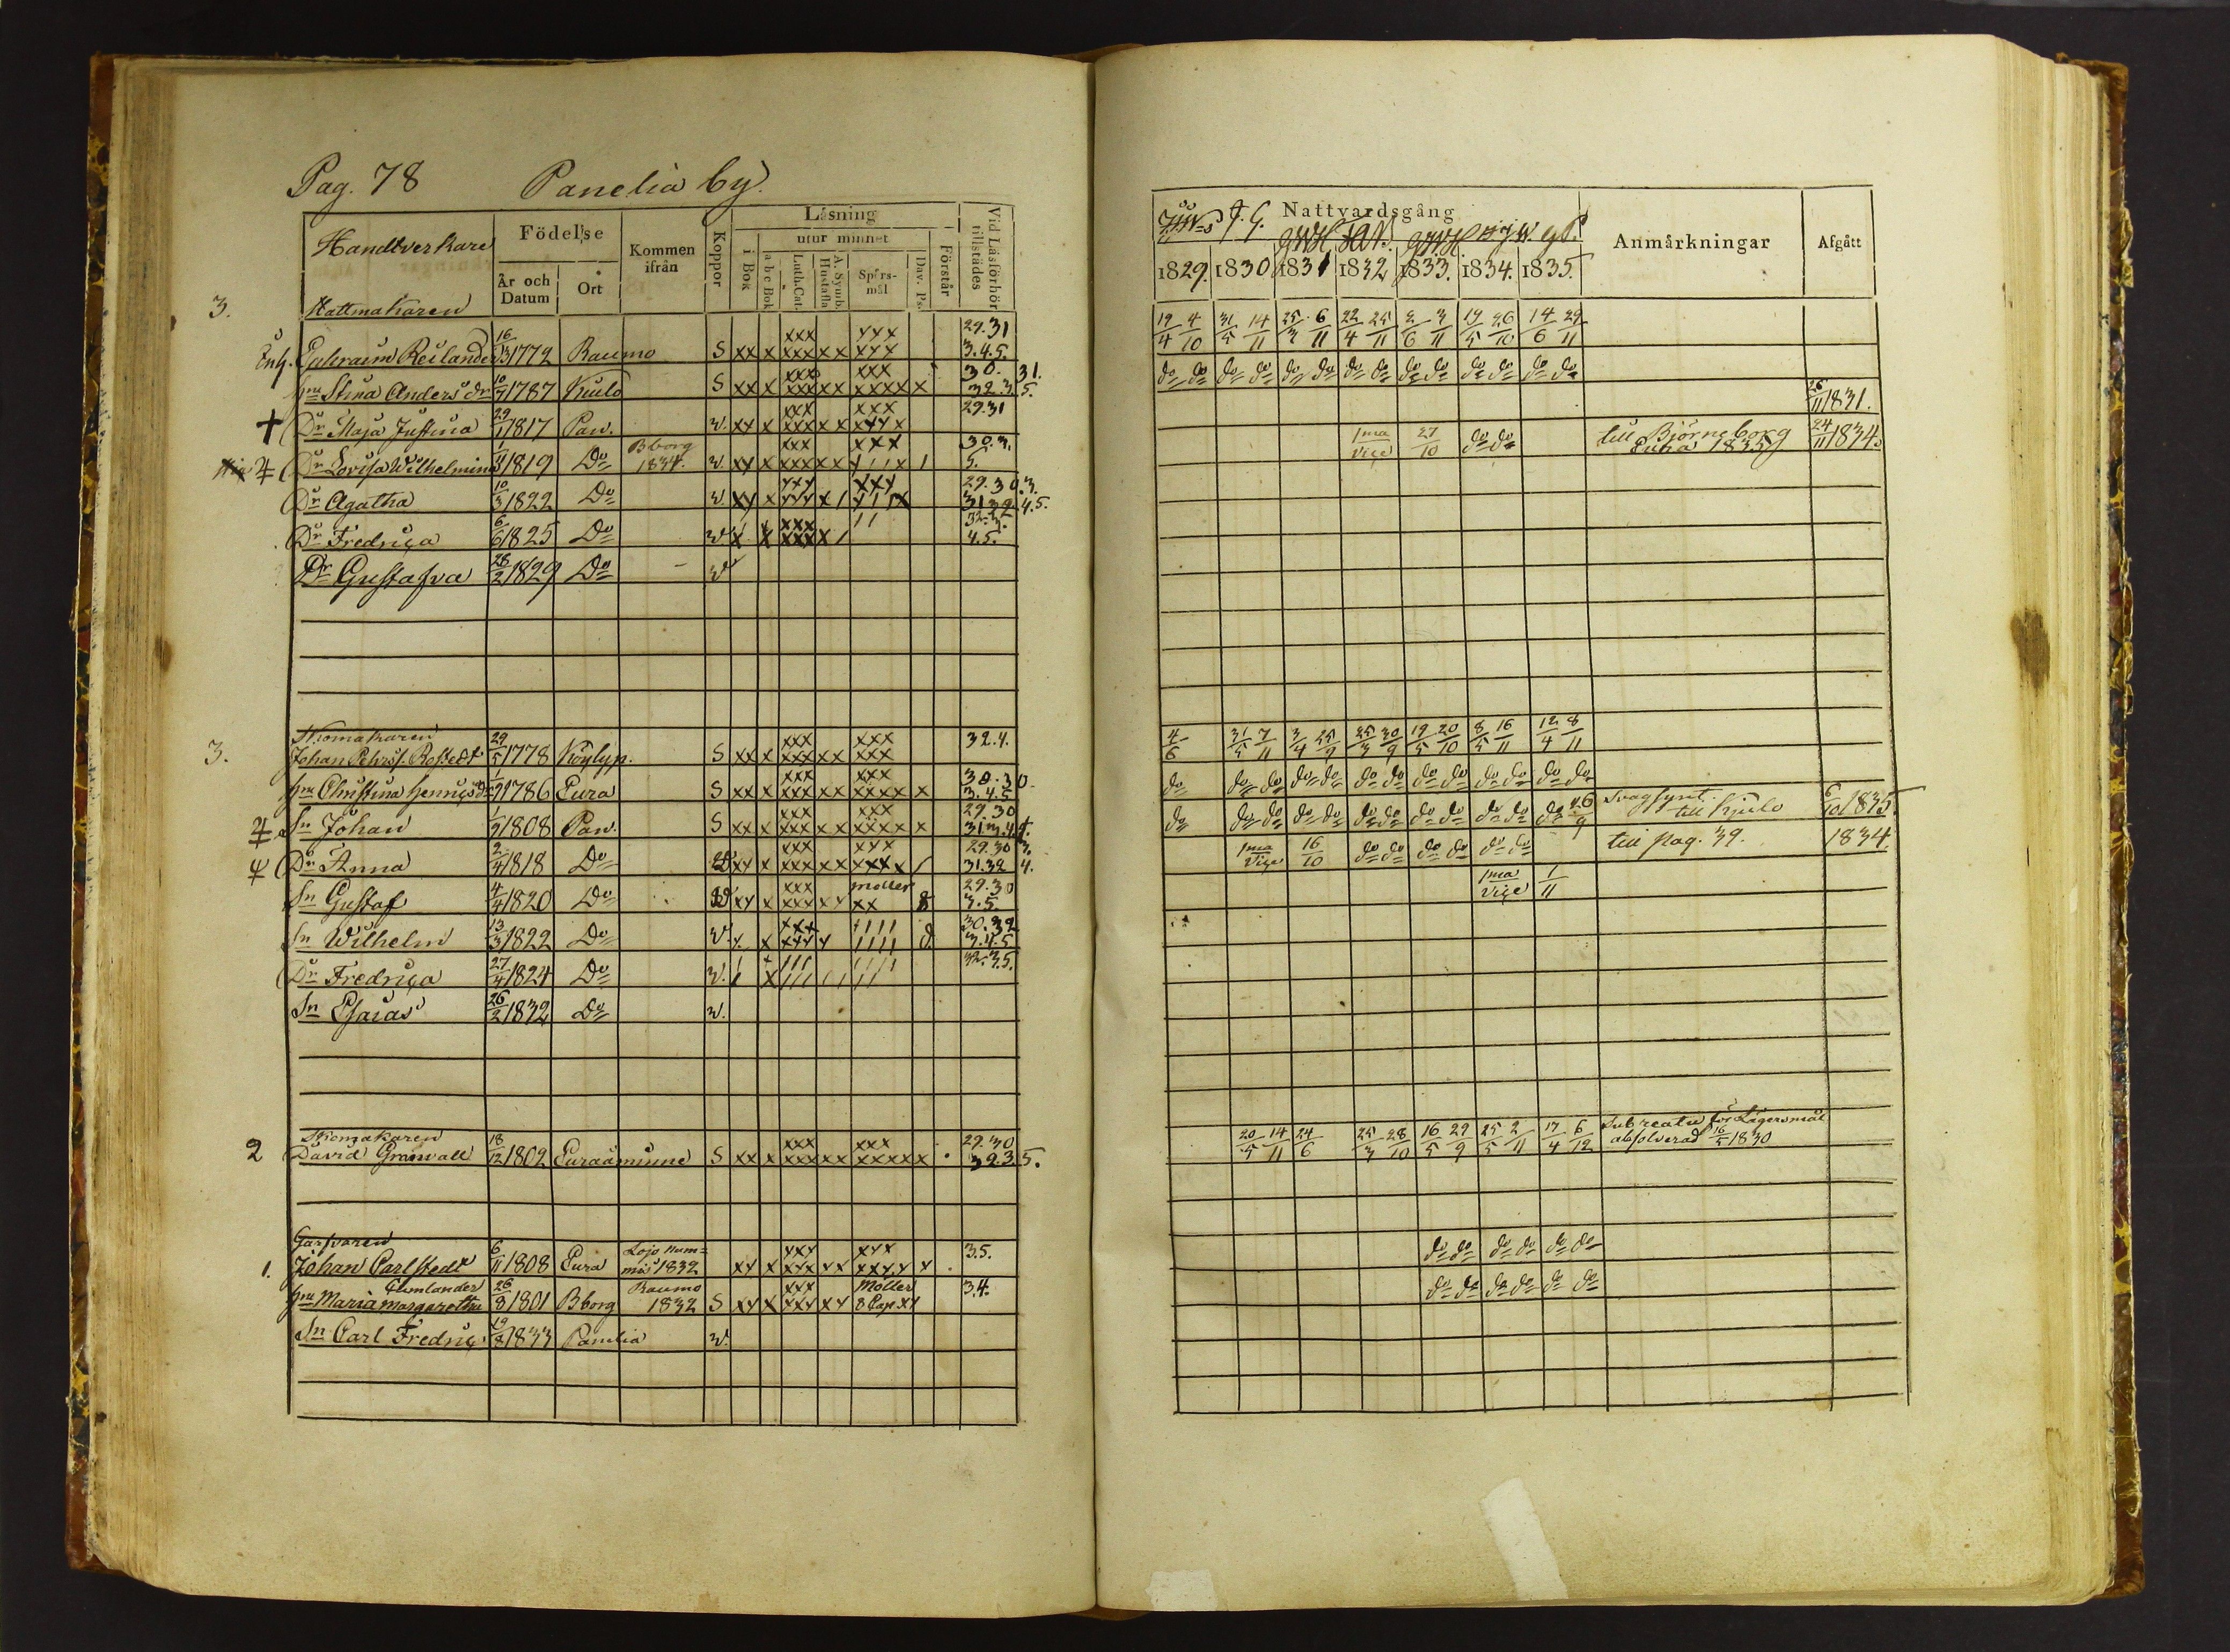 Pag. 78 Panelia by.
Handtverkare
Födelse
År och Datum
Ort
Kommen ifrån
Koppor
Läsning
utur minnet
i Bok
a b c Bok
Luth. Cat.
A. Symb. Hustafla
Spörsmål
Dav. Ps.
Förstår
Vid Läsförhör tillstädes
3. Hattmakaren
Enh. Ephraim Reilander 16/3 1772 Raumo S xx x xxx xxx xx xxx xxx 29.31 3.4.5.
hru Stina Andersdr 10/7 1787 Kiulo S xx x xxx xxx xx xxx xxxx x 30. 31. 32.3.5.
+ Dr Maja Justina 29/1 1817 Pan. w. xx x xxx xxx xx xxx xxxx 29.31
Dr Lovisa Wilhelmina 1/11 1819 Do Bborg 1834. w. xx x xxx xxx xx xxx 30.3. 5.
Dr Agatha 10/3 1822 Do w. 29.30.3. 31.32.4.5.
Dr Fredrica 6/6 1825 Do w 32.3. 4.5.
Dr Gustafva 28/2 1829 Do w
3. Skomakaren
Johan Pehrss. Rostedt 29/5 1778 Köylyp. S xx x xxx xxx xx xxx xxx 32.4.
hru Christina Henricsdr 1786 Eura S xx x xxx xxx xx xxx xxxx x 30.30 3.4.5
Sn Johan 1808 Pan. S xx x xxx xxx xx xxx xxxx x 29.30 31.3.4.
Dr Anna 2/4 1818 Do xx x xxx xxx xx xxx xxxx 29.30 3. 31.32 4.
Sn Gustaf 4/4 1820 Do xx x xxx xxx xx möller xx 8 29.30 3.5.
Sn Wilhelm 13/3 1822 Do w 30.32 3.4.5
Dr Fredrica 27/4 1824 Do w. 32.3.5.
Sn Esaias 26/2 1832 Do w.
2 Skomakaren
David Granvall 18/12 1802 Euraåminne S xx x xxx xxx xx xxx xxxx x 29.30 32.3.5.
Garfvaren
1. Johan Carlstedt 6/11 1808 Eura Lojo Nummis 1832 xx x xxx xxx xx xxx xxxx x 3.5.
hru Maria Margaretha 26/8 1801 Bborg Raumo 1832 S xx x xxx xxx xx Möller 8 Cap. xx 3.4.
Sn Carl Fredric 19/8 1833 Panelia w.
Nattvardsgång
Anmärkningar
Afgått
1829. 1830 1831 1832 1833. 1834. 1835.
19/4 4/10 31/5 14/11 25/3 6/11 22/4 25/11 2/6 3/11 19/5 26/10 14/6 29/11
do do do do do do do do do do do do do do
26/11 1831.
1ma vice 27/10 do do till Björneborg 24/11 1834.
1835
4/6 31/5 7/11 3/4 25/9 25/3 30/9 19/5 20/10 8/5 16/11 12/4 8/11
do do do do do do do do do do do do do
do do do do do do do do do do do do Svagsynt till Kjulo 6/10 1835.
1ma vice 16/10 do do do do do do till pag. 39. 1834.
1ma vice 1/11
20/5 14/11 24/6 25/3 28/10 16/5 29/9 25/5 2/11 17/4 6/12 Sub reatu för Lägersmål
absolverad 16/5 1830
do do do do do do
do do do do do do